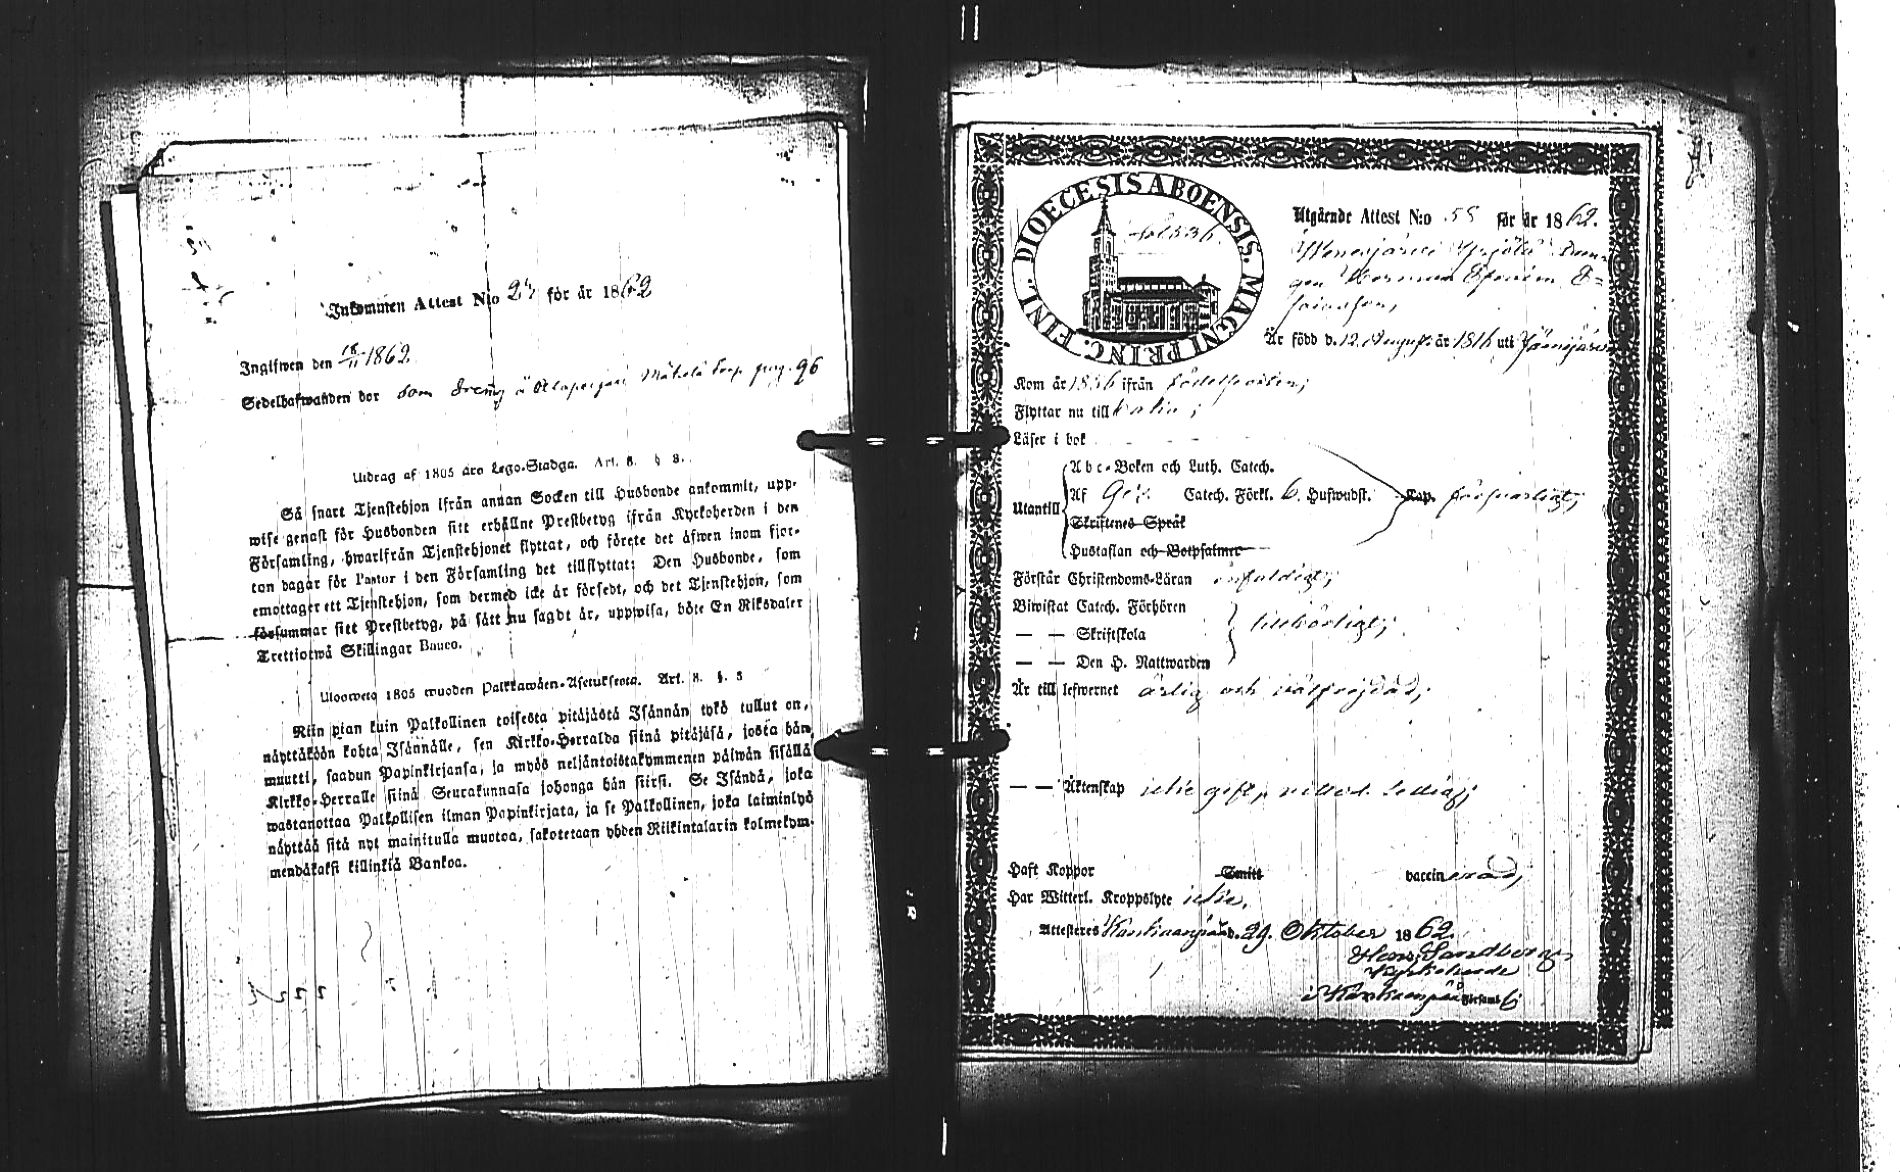 Inkommen Attest N:o 24 för år 1862
Ingifwen den 18/11 1862
Sedelhafwanden bor som dreng å torp pag. 96
Utdrag af 1805 års Lego-Stadga. Art. 8. § 8.
Så snart Tjenstehjon ifrån annan Socken till Husbonde ankommit, upp-
wise genast för Husbonden sitt erhållne Prestbetyg ifrån Kyrkoherden i den
Församling, hwarifrån Tjenstehjonet flyttat, och förete det äfwen inom fjor-
ton dagar för Pastor i den Församling det tillflyttat; Den Husbonde, som
emottager ett Tjenstehjon, som dermed icke är försedt, och det Tjenstehjon, som
försummar sitt Prestbetyg, på sätt nu sagdt är, uppwisa, böte En Riksdaler
Trettiotwå Skillingar Banco.
Uloswetg 1805 wuoden Palkkawäen-Asetuksesta. Art. 8. §. 8
Niin pian kuin Palkollinen toisesta pitäjästä Isännän tykö tullut on,
näyttäköön kohta Isännälle, sen Kirkko-Herralda siinä pitäjäsä, josta hän
muutti, saadun Papinkirjansa, ja myös neljäntoistakymmenen päiwän sisällä
Kirkko-Herralle siinä Seurakunnasa johonga hän siirsi. Se Isändä, joka
wastanottaa Palkollisen ilman Papinkirjata, ja se Palkollinen, joka laiminlyö
näyttää sitä nyt mainitulla muotoa, sakotetaan yhden Riikintalarin kolmekym-
mendäkaksi killinkiä Bankoa.
DIOECESIS ABOENSIS. MAGNI PRINC. FINL.
Fol 336.
Utgående Attest N:o 58 för år 1862.
Drän-
gen Herman Efraim E-
saiasson,
Är född d. 12 August: år 1816 uti Jämijärvi
Kom år 1836 ifrån födelseorten;
Flyttar nu till
Läser i bok
Utantill
A b c-Boken och Luth. Catech.
Af Catech. Förkl. 6. Hufwudst. Kap. försvarligt;
Skriftenes Språk
Hustaflan och Botpsalmer
Förstår Christendoms-Läran enfaldigt;
Biwistat Catech. Förhören
— — Skriftskola tillbörligt;
— — Den H. Nattwarden
Är till lefwernet ärlig och välfrejdad;
— — Äktenskap icke gift,
Haft Koppor Smitt vaccinerad,
Har Witterl. Kroppslyte icke.
Attesteres Kankaanpää d. 29. Oktober 1862.
Sandberg
Kyrkoherde
i Kankaanpää Församl.